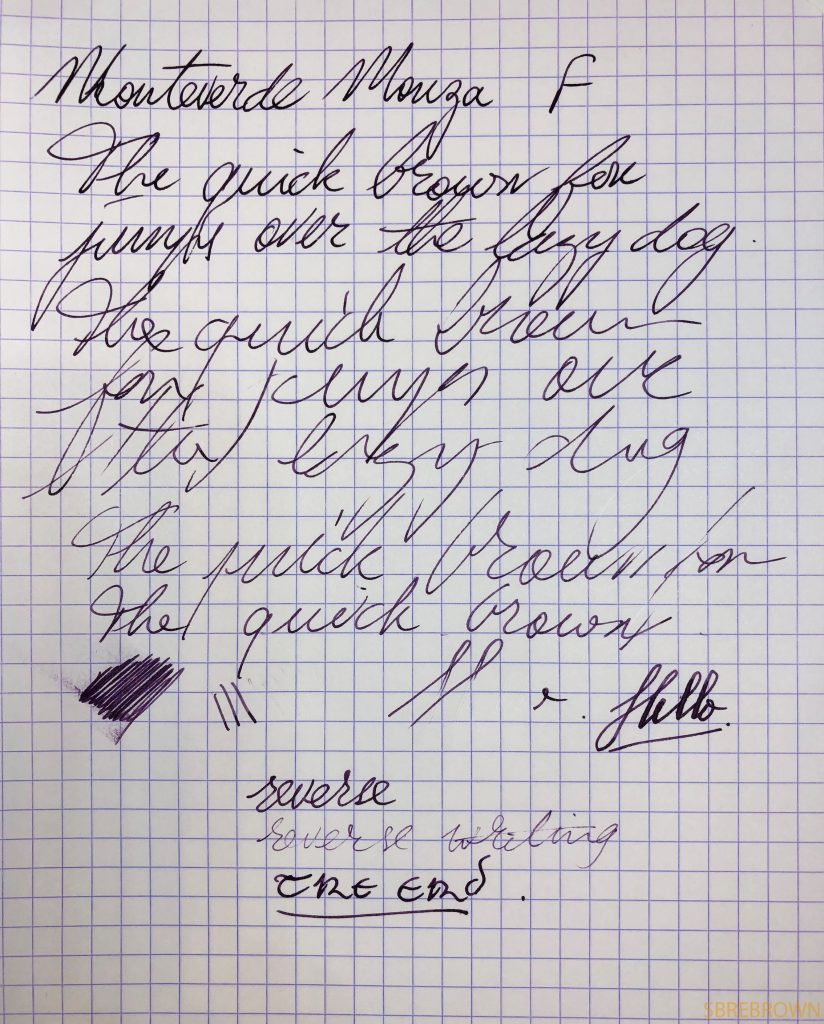 Monteverde Monza F
The quick brown fox
jumps over the lazy dog.
The quick brown
fox jumps over
the lazy dog
The quick brown fox
The quick brown
Hello.
reverse
reverse writing
THE END.
SBREBROWN